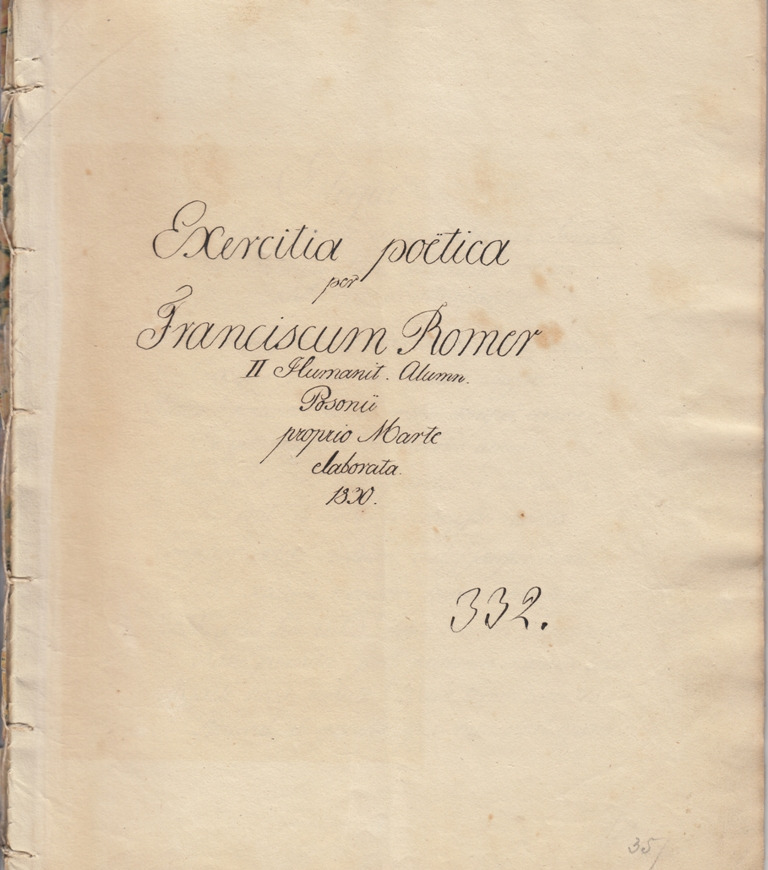 Exercitia poëtica
per
Franciscum Romer
II Humanit. Alumn.
Posonii
proprio Marte
elaborata.
1830.
332.
35